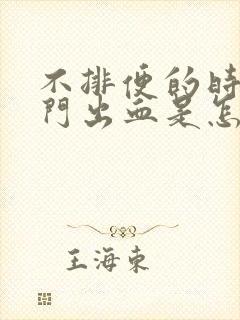 不排便的時
門出血是怎
王海東